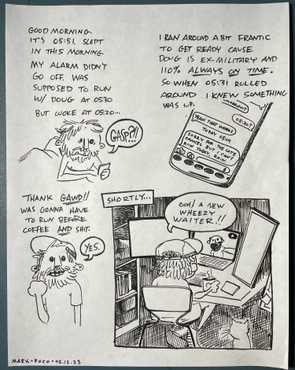 GOOD MORNING.
IT'S 05:51. SLEPT
IN THIS MORNING.
MY ALARM DIDN'T
GO OFF. WAS
SUPPOSED TO RUN
W/ DOUG AT 0530
BUT WOKE AT 0520...
GASP!!
I RAN AROUND A BIT FRANTIC
TO GET READY CAUSE
DOUG IS EX-MILITARY AND
110% ALWAYS ON TIME.
SO WHEN 05:31 ROLLED
AROUND I KNEW SOMETHING
WAS UP.
THANK GAWD!!
WAS GONNA HAVE
TO RUN BEFORE
COFFEE AND SHIT.
YES.
SHORTLY...
OOH! A NEW
WHEEZY
WAITER!!
MARK